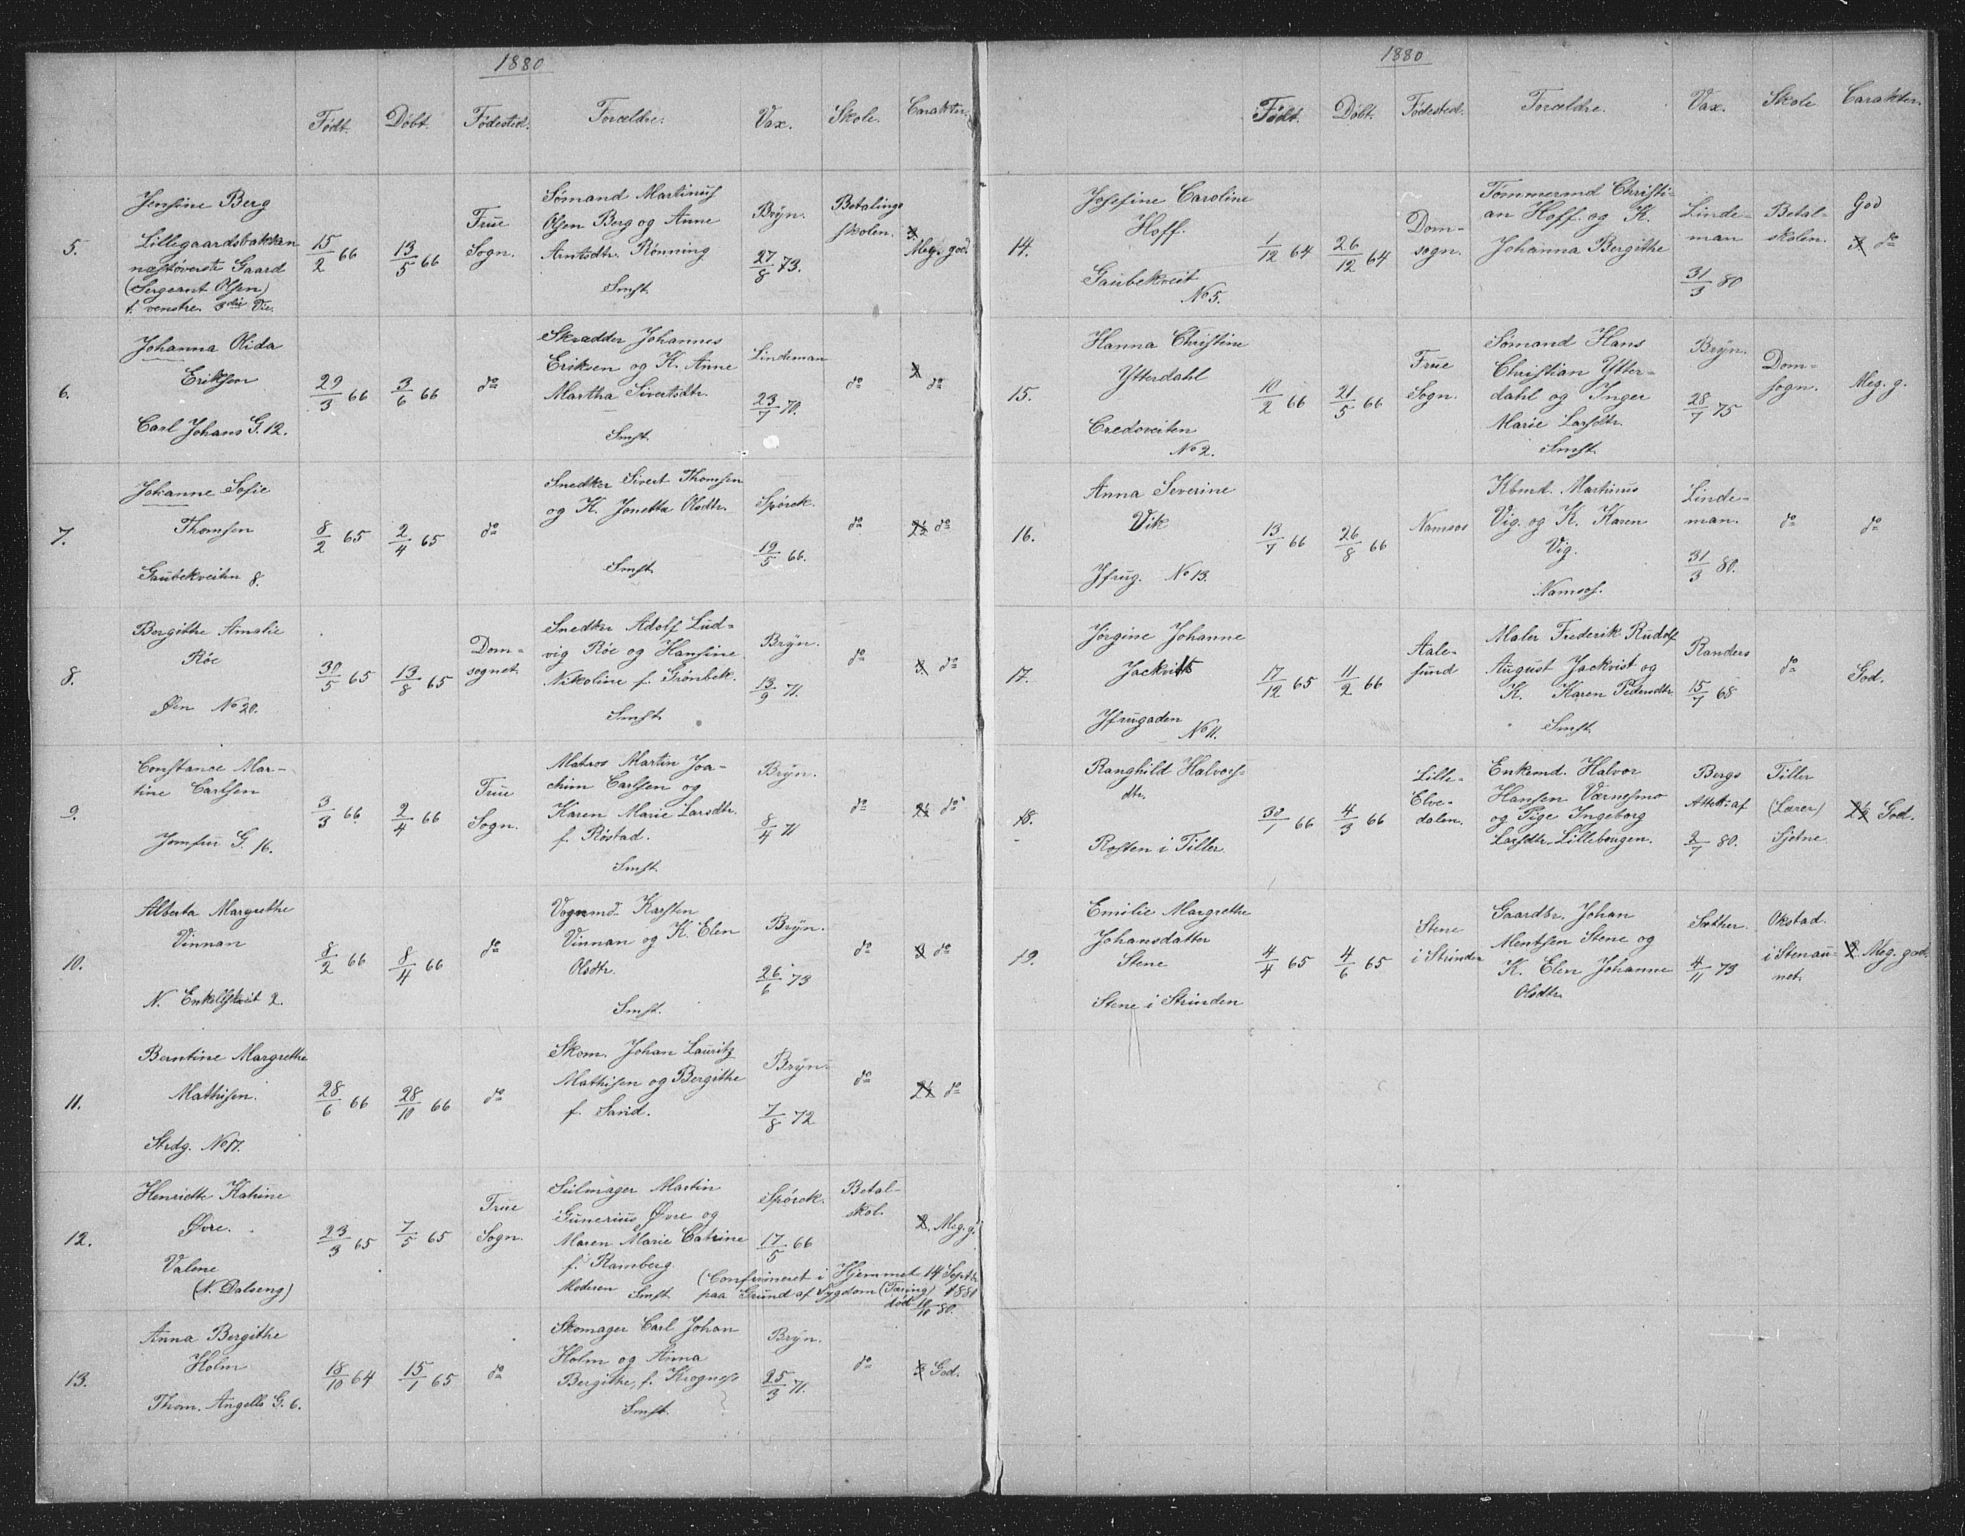 1880
Født. Døbt. Fødested. Forældre. Vax. Skole. Carakter.
5.
Jensine Berg
Lillegaardsbakken
næstøverste Gaard
(Sergeant Olsen)
t. venstre 3die
15/2 66
13/5 66
Frue
Sogn.
Sømand Martinus
Olsen Berg og Anne
Arntsdtr. Rønning
Smst.
Bryn.
27/8 73.
Betalings
skolen.
Meg. god.
6.
Johanna Olida
Eriksen
Carl Johans G. 12.
29/3 66
3/6 66
do
Skrædder Johannes
Eriksen og K. Anne
Martha Sivertsdtr.
Smst.
Lindeman
23/7 70.
do
do
7.
Johanne Sofie
Thomsen
Gaubekveiten 8.
8/2 65
2/4 65
do
Snedker Sivert Thomsen
og K. Jonetta Olsdtr.
Smst.
Spörck.
19/5 66.
do
do
8.
Bergithe Amalie
Röe
Øen No 20.
30/5 65
13/8 65
Dom-
sognet.
Snedker Adolf Lud-
vig Röe og Hansine
Nikoline f. Grönbek.
Smst.
Bryn.
13/9 71.
do
do
9.
Constance Mar-
tine Carlsen
Jomfru G. 16.
3/3 66
2/4 66
Frue
Sogn.
Matros Martin Joa-
chim Carlsen og
Karen Marie Larsdtr.
f. Röstad.
Smst.
Bryn.
8/4 71
do
do
10.
Alberta Margrethe
Vinnan
N. Enkeltskveit 2.
8/2 66
8/4 66
do
Vognmd. Karsten
Vinnan og K. Elen
Olsdtr.
Smst.
Bryn.
26/6 73
do
do
11.
Berntine Margrethe
Mathisen.
Strdg. No 17.
28/6 66
28/10 66
do
Skom. Johan Lauritz
Mathisen og Bergithe
f. Sand.
Bryn.
7/8 72
do
do
12.
Henriette Katrine
Øvre.
Valene
(N. Dalseng)
23/3 65
7/5 65
Frue
Sogn.
Seilmager Martin
Gunerius Øvre og
Maren Marie Catrine
f. Ramberg.
Moderen Smst.
Spörck.
17/5 66
Betal-
skol.
2. Meg. g.
(Confirmeret i Hjemmet 14 Septr.
paa Grund af Sygdom (Tæring) 1880
død 80.
13.
Anna Bergithe
Holm
Thom. Angells G. 6.
18/10 64
15/1 65
do
Skomager Carl Johan
Holm og Anna
Bergithe, f. Krogness
Smst.
Bryn.
25/3 71.
do
God.
1880
Født. Døbt. Fødested. Forældre. Vax. Skole Carakter.
14.
Josefine Caroline
Hoff.
Gaubekveit
No 5.
1/12 64
26/12 64
Dom-
sogn.
Tømmermd Christi-
an Hoff og K.
Johanna Bergithe
Linde-
man
31/3 80
Betal-
skolen.
God
do
15.
Hanna Christine
Ytterdahl
Credoveiten
No 2.
10/2 66
21/5 66
Frue
Sogn.
Sømand Hans
Christian Ytter-
dahl og Inger
Marie Larsdtr.
Smst.
Bryn.
28/7 75
Dom-
sogn.
Meg. g.
16.
Anna Severine
Vik
Jfrug. No 13.
13/7 66
26/8 66
Namsos
Kbmd. Martinus
Vig. og K. Karen
Vig.
Namsos.
Linde-
man.
31/3 80.
do
do
17.
Jørgine Johanne
Jackvist
Jfrugaden
No 11.
17/12 65
11/2 66
Aale-
sund
Maler Frederik Rudolf
August Jackvist og
K. Karen Pedersdtr
Smst.
Randers
15/7 68
do
God.
18.
Ranghild Halvors-
dtr.
Rosten i Tiller
30/1 66
4/3 66
Lille-
Elve-
dalen.
Enkemd. Halvor
Hansen Værnesmo
og Pige Ingeborg
Larsdtr. Lillebougen.
Bergs
Attest af
2/7 80.
Tiller
(Lærer)
Sjetne
God.
19.
Emilie Margrethe
Johansdatter
Stene
Stene i Strinden
4/4 65
4/6 65
Stene
i Strinden
Gaardbr. Johan
Mentsen Stene og
K. Elen Johanne
Olsdtr.
Sæther.
4/11 73
Okstad
i Stenau-
net.
Meg. god.